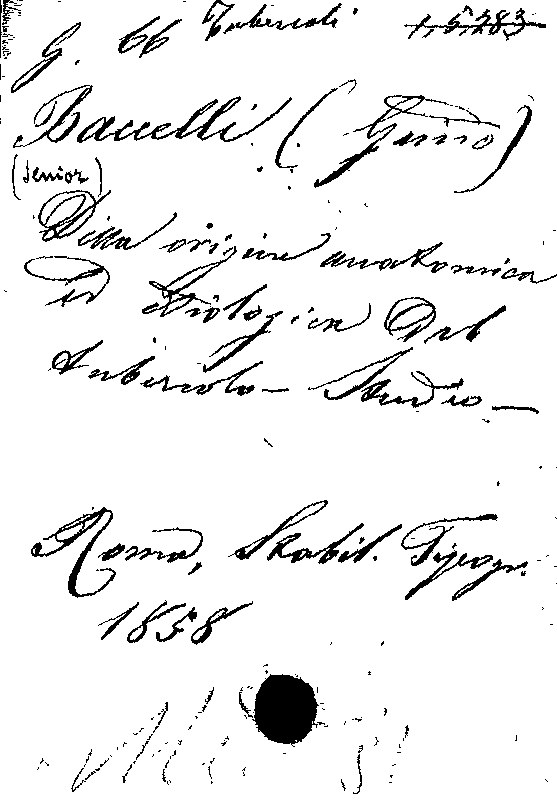 G. 66 Tubercoli 1,5,283
Baccelli (Guido)
(Senior)
Della origine anatomica
ed Etiologica Del
tubercolo — Studio —
Roma, Stabil. Tipogr.
1858